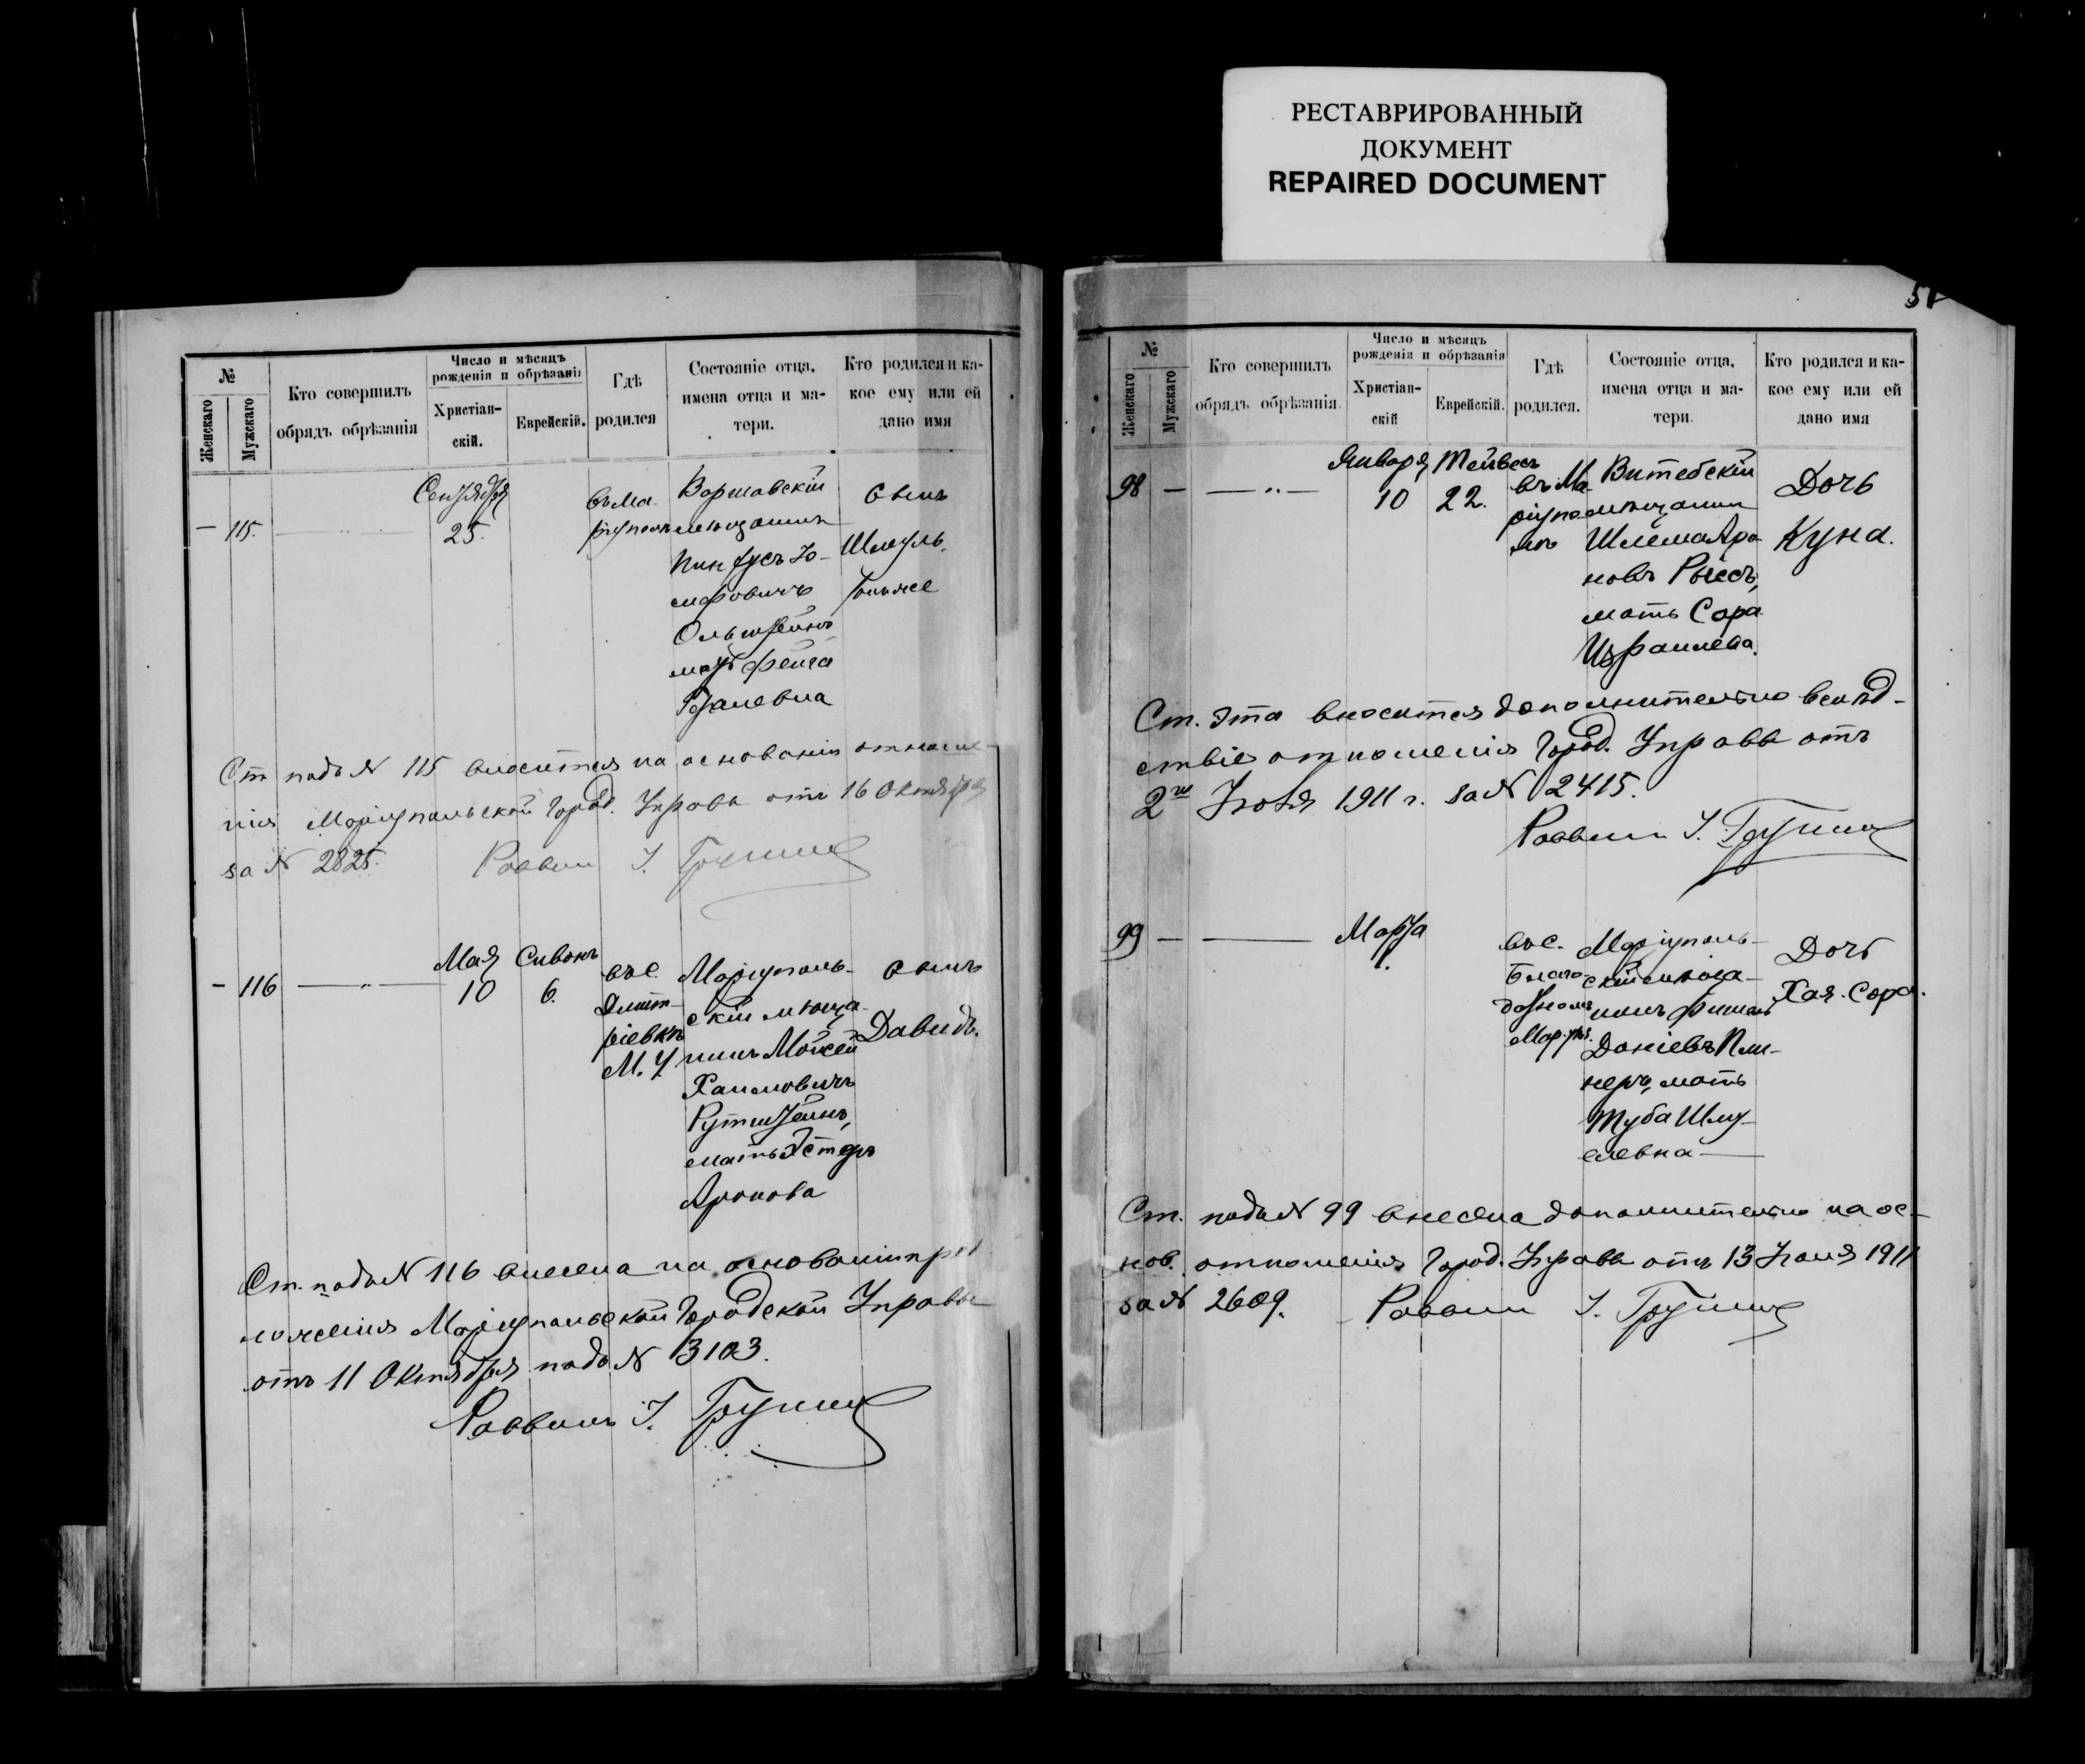 РЕСТАВРИРОВАННЫЙ
ДОКУМЕНТ
REPAIRED DOCUMENT
№
Женскаго
Мужскаго
Кто совершилъ
обрядъ обрѣзанія
Число и мѣсяцъ
рожденія и обрѣзанія
Христіан-
скій.
Еврейскій.
Гдѣ
родился
Состояніе отца,
имена отца и ма-
тери.
Кто родился и ка-
кое ему или ей
дано имя
— 115.
Сентября
25.
въ Ма-
ріуполѣ
Варшавскій
мѣщанинъ
Пинхусъ Іо-
сифовичъ
Ольштейнъ
мать Фейга
сынъ
Шмуль
Ст. подъ № 115 вносится на основаніи отноше-
нія Маріупольской Город. Управы отъ 16 Октября
за № 2825. Раввинъ
— 116
Мая
10
Сивонъ
6.
въ с.
Дмит-
ріевкѣ
М. У.
Маріуполь-
скій мѣща-
нинъ Мойсей
Хаимовичъ
Рутштейнъ,
мать Эстеръ
Аронова
сынъ
Давидъ.
Ст. подъ № 116 внесена на основаніи пред
ложенія Маріупольской Городской Управы
отъ 11 Октября подъ № 3103.
Раввинъ
№
Женскаго
Мужскаго
Кто совершилъ
обрядъ обрѣзанія.
Число и мѣсяцъ
рожденія и обрѣзанія
Христіан-
скій
Еврейскій.
Гдѣ
родился.
Состояніе отца,
имена отца и ма-
тери.
Кто родился и ка-
кое ему или ей
дано имя
98 — — " —
Января
10
Тейвесъ
22.
въ Ма-
ріупо-
лѣ
Витебскій
мѣщанин
Шлема Аро-
новъ
мать Сора
Израилева.
Дочь
Куна.
Ст. эта вносится дополнительно вслѣд-
ствіе отношенія Город. Управы отъ
2го 1911 г. за № 2415.
Раввинъ
99 —
Марта
1.
въ с.
Благо-
датномъ
Мар. у.
Маріуполь-
скій мѣща-
нинъ
Даніевъ
мать
Туба Шму-
елевна
Дочь
Хая-Сора.
Ст. подъ № 99 внесена дополнительно на ос-
нов. отношенія Город. Управы отъ 13 1911
за № 2609. Раввинъ